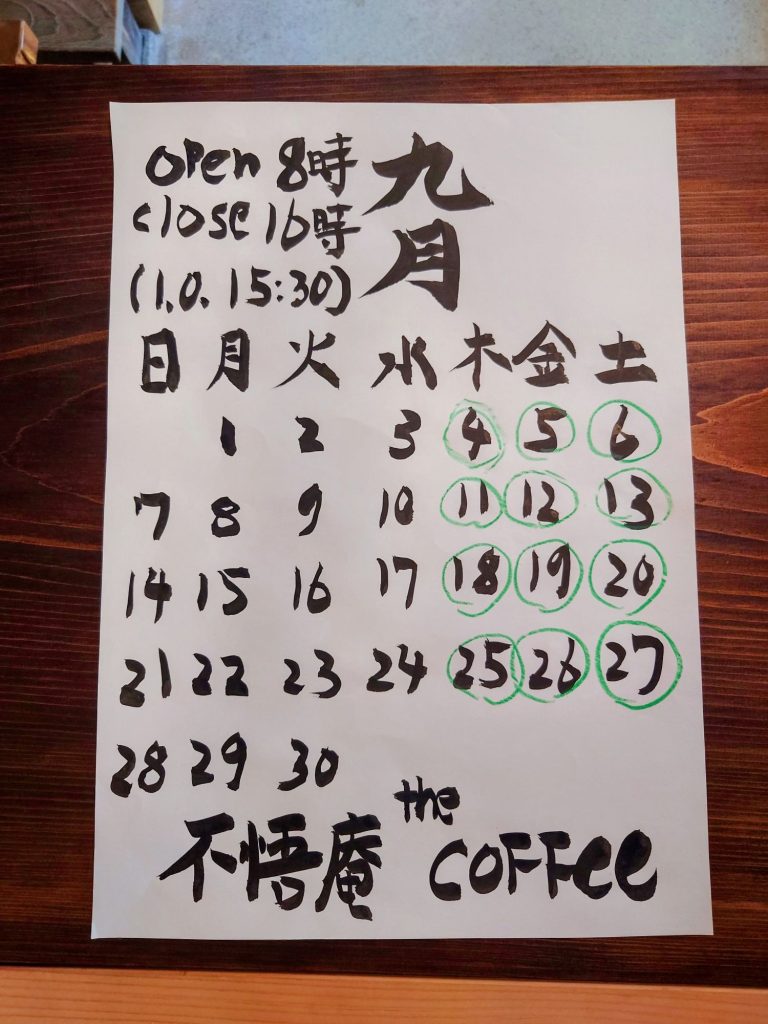 open 8時
close 16時
(l.o. 15:30)
九月
日 月 火 水 木 金 土
1 2 3 4 5 6
7 8 9 10 11 12 13
14 15 16 17 18 19 20
21 22 23 24 25 26 27
28 29 30
不悟庵 the COFFee